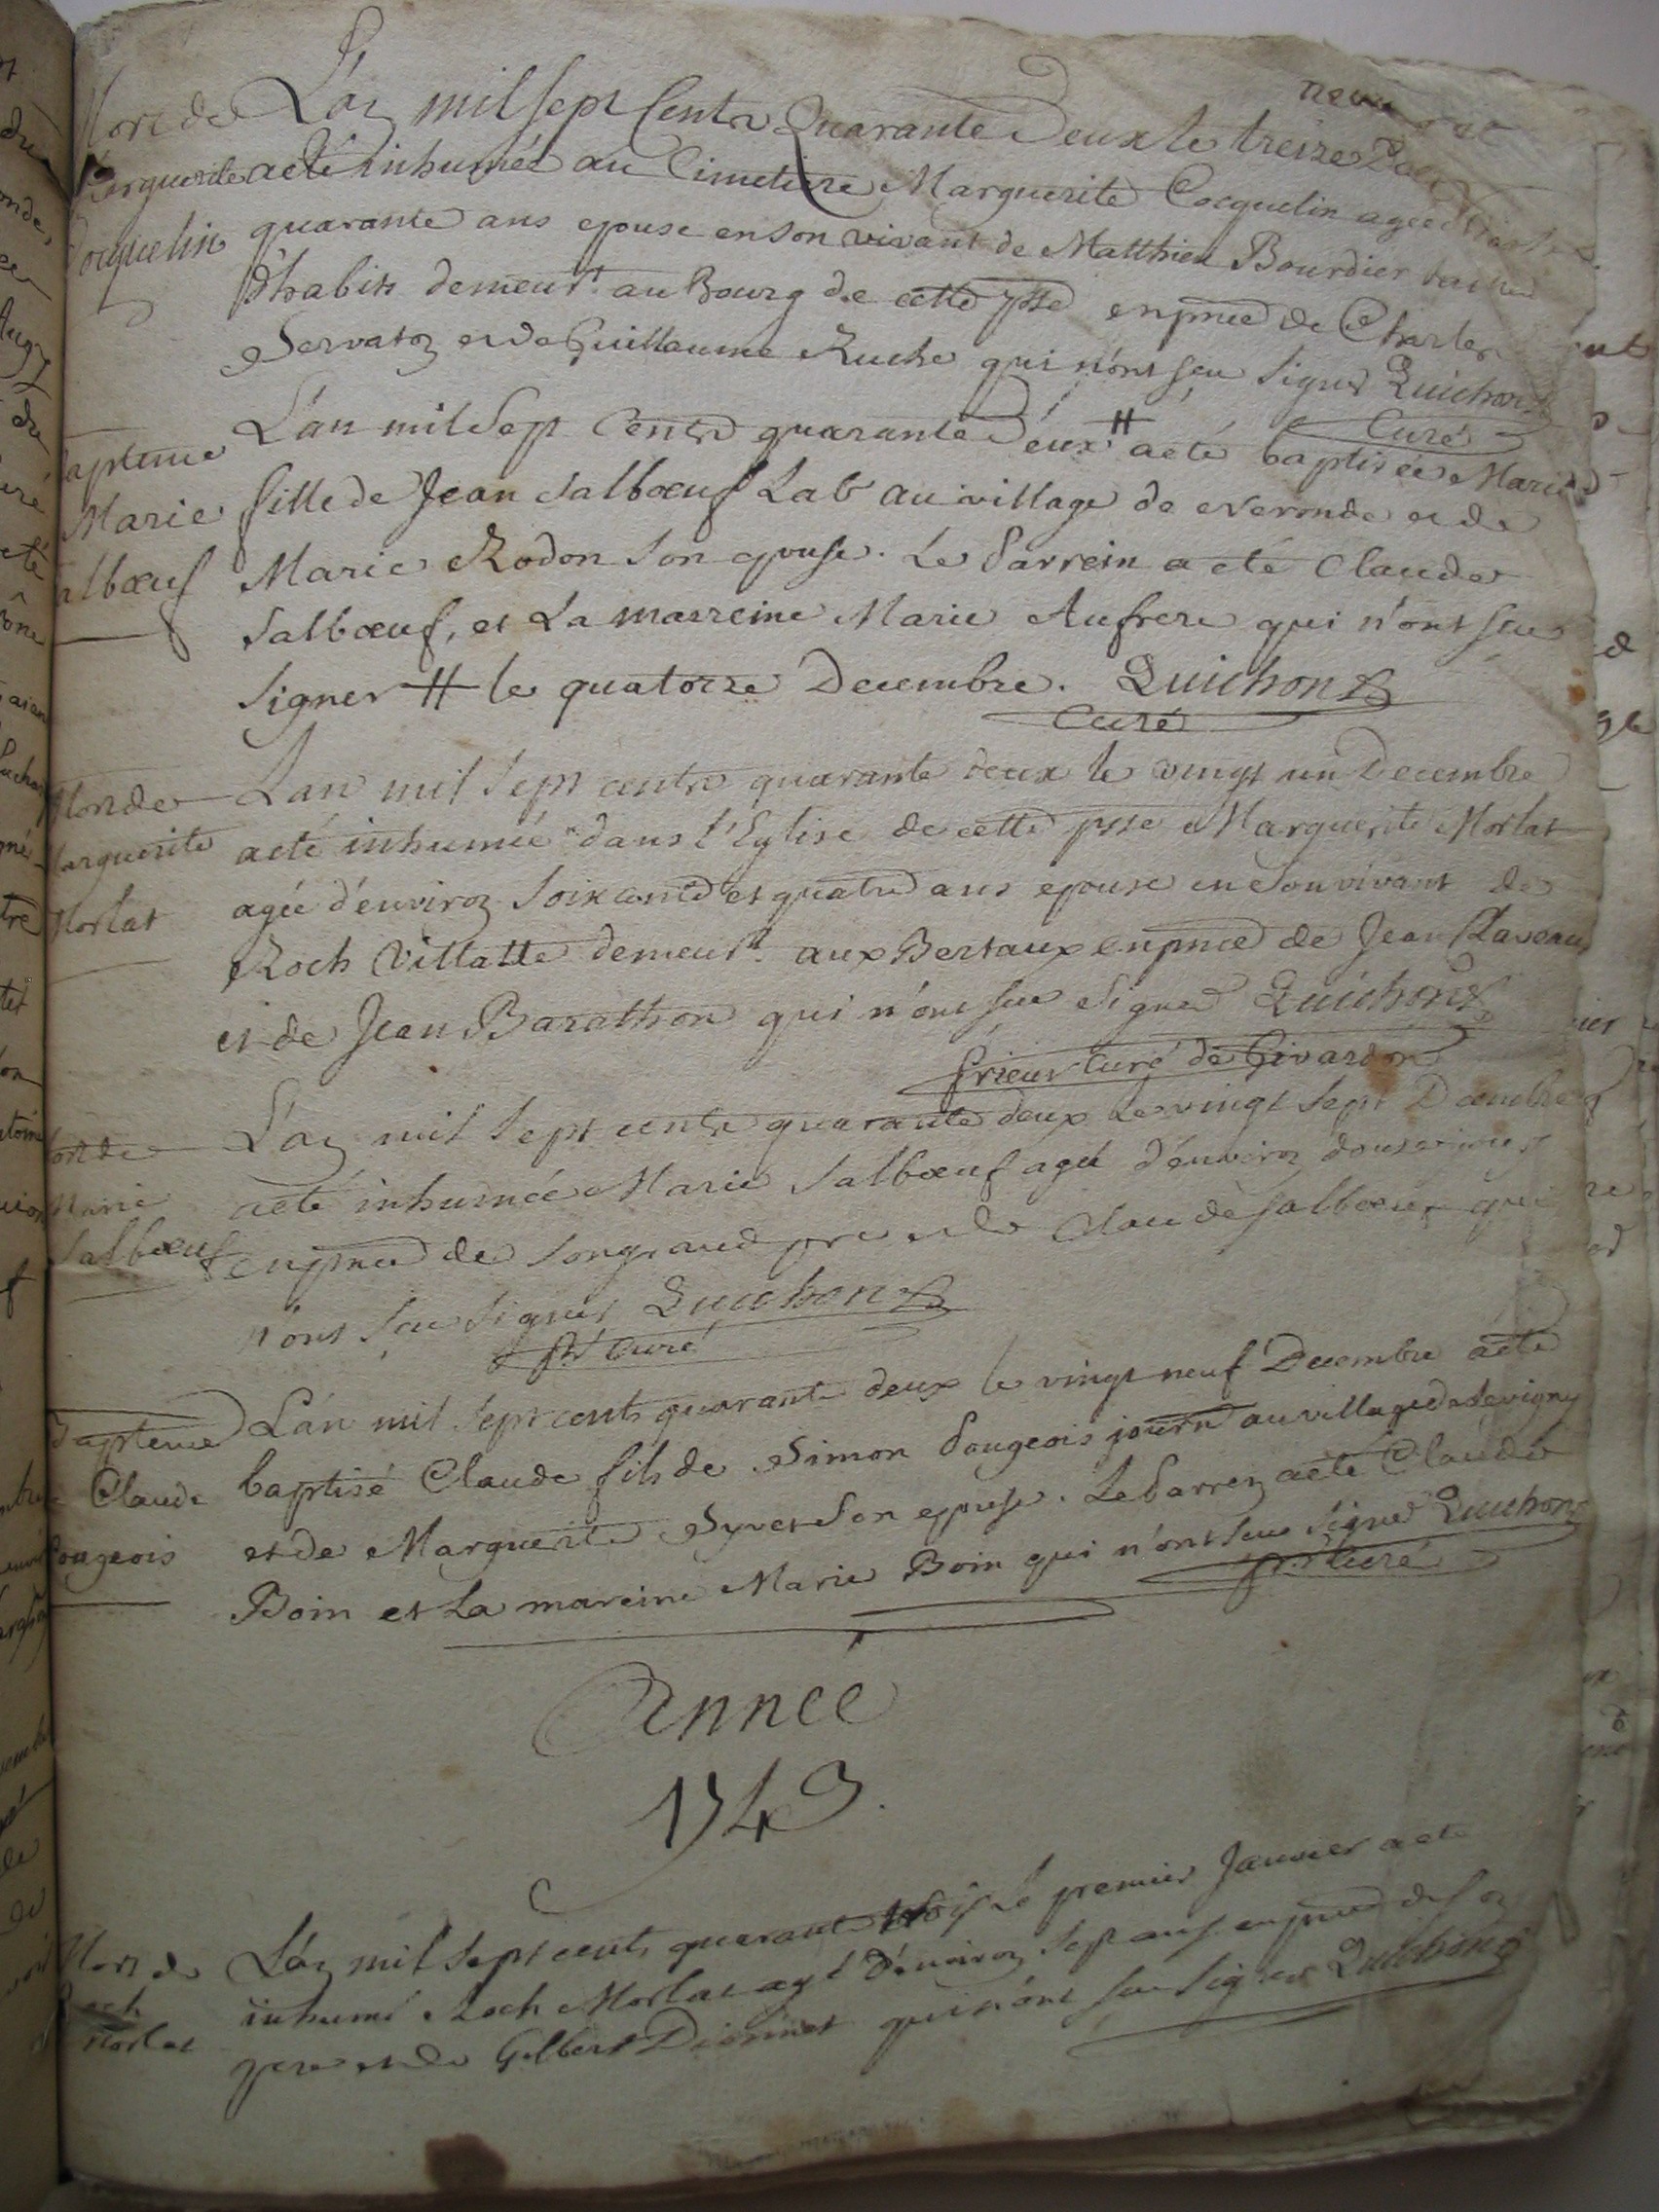 neuf
Mort de
Marguerite
Cocquelin
L'an mil sept Cents Quarante Deux le treize
a eté inhumée au Cimetiere Marguerite Cocquelin agee
quarante ans epouse en son vivant de Matthieu Bourdier
d'habits demeurt au Bourg de cette psse en pnce de Charles
Servaton et de Guillaume Ruche qui n'ont sçu signer Quichon
Curé
Bapteme
Marie
Salbœuf
L'an mil Sept Cents quarante Deux # a eté baptisée Marie
fille de Jean Salbœuf Lab au village de Neronde et de
Marie Rodon son epouse. Le Parrein a eté Claude
Salbœuf, et La marreine Marie Aufrere qui n'ont sçu
signer # le quatorze Decembre. Quichon
Curé
Mort de
Marguerite
Morlat
L'an mil sept cents quarante deux le vingt un Decembre
a eté inhumée dans l'Eglise de cette psse Marguerite Morlat
agée d'environ soixante et quatre ans epouse en son vivant de
Roch Villatte demeurt aux Bertaux en pnce de Jean Claveau
et de Jean Barathon qui n'ont sçu signer Quichon
Prieur Curé de Givardon
Mort de
Marie
Salbœuf
L'an mil sept cents quarante deux Le vingt sept Decembre
a eté inhumée Marie Salbœuf agée d'environ douze jours
en pnce de son grand pere et de Claude Salbœuf qui
n'ont sçu signer Quichon
pr Curé
Bapteme
Claude
Pougeois
L'an mil sept cents quarante deux le vingt neuf Decembre a eté
baptisé Claude fils de Simon Pougeois journ au village de Sevigny
et de Marguerite Syvet Son epouse. Le Parren a eté Claude
Boin et La mareine Marie Boin qui n'ont sçu signer Quichon
pr Curé
Année
1743.
Mort de
Roch
Morlat
L'an mil sept cents quarante trois Le premier Janvier a eté
inhumé Roch Morlat agé d'environ sept ans en pnce de son
pere et de Gilbert Dionnet qui n'ont sçu signer Quichon